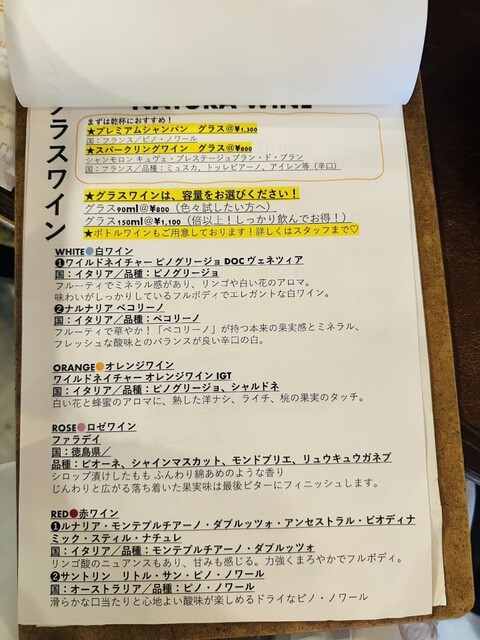 グラスワイン
NATURA WINE
まずは乾杯におすすめ！
★プレミアムシャンパン グラス@¥1,300
国：フランス/ピノ・ノワール
★スパークリングワイン グラス@¥800
シャンモロン キュヴェ・プレステージュブラン・ド・ブラン
国：フランス/品種：ミュスカ、トレビアーノ、アイレン等（辛口）
★グラスワインは、容量をお選びください！
グラス90ml@¥800（色々試したい方へ）
グラス150ml@¥1,100（倍以上！しっかり飲んでお得！）
★ボトルワインもご用意しております！詳しくはスタッフまで♡
WHITE●白ワイン
❶ワイルドネイチャー ピノグリージョ DOC ヴェネツィア
国：イタリア／品種：ピノグリージョ
フルーティでミネラル感があり、リンゴや白い花のアロマ。
味わいがしっかりしているフルボディでエレガントな白ワイン。
❷ナルナリア ペコリーノ
国：イタリア／品種：ペコリーノ
フルーティで華やか！「ペコリーノ」が持つ本来の果実感とミネラル、
フレッシュな酸味とのバランスが良い辛口の白。
ORANGE●オレンジワイン
ワイルドネイチャー オレンジワイン IGT
国：イタリア／品種：ピノグリージョ、シャルドネ
白い花と蜂蜜のアロマに、熟した洋ナシ、ライチ、桃の果実のタッチ。
ROSE●ロゼワイン
ファラデイ
国：徳島県／
品種：ピオーネ、シャインマスカット、モンドブリエ、リュウキュウガネブ
シロップ漬けしたもも ふんわり綿あめのような香り
じんわりと広がる落ち着いた果実味は最後ビターにフィニッシュします。
RED●赤ワイン
❶ルナリア・モンテプルチアーノ・ダブルッツォ・アンセストラル・ビオディナ
ミック・スティル・ナチュレ
国：イタリア／品種：モンテプルチアーノ・ダブルッツォ
リンゴ酸のニュアンスもあり、甘みも感じる。力強くまろやかでフルボディ。
❷サントリン リトル・サン・ピノ・ノワール
国：オーストラリア／品種：ピノ・ノワール
滑らかな口当たりと心地よい酸味が楽しめるドライなピノ・ノワール